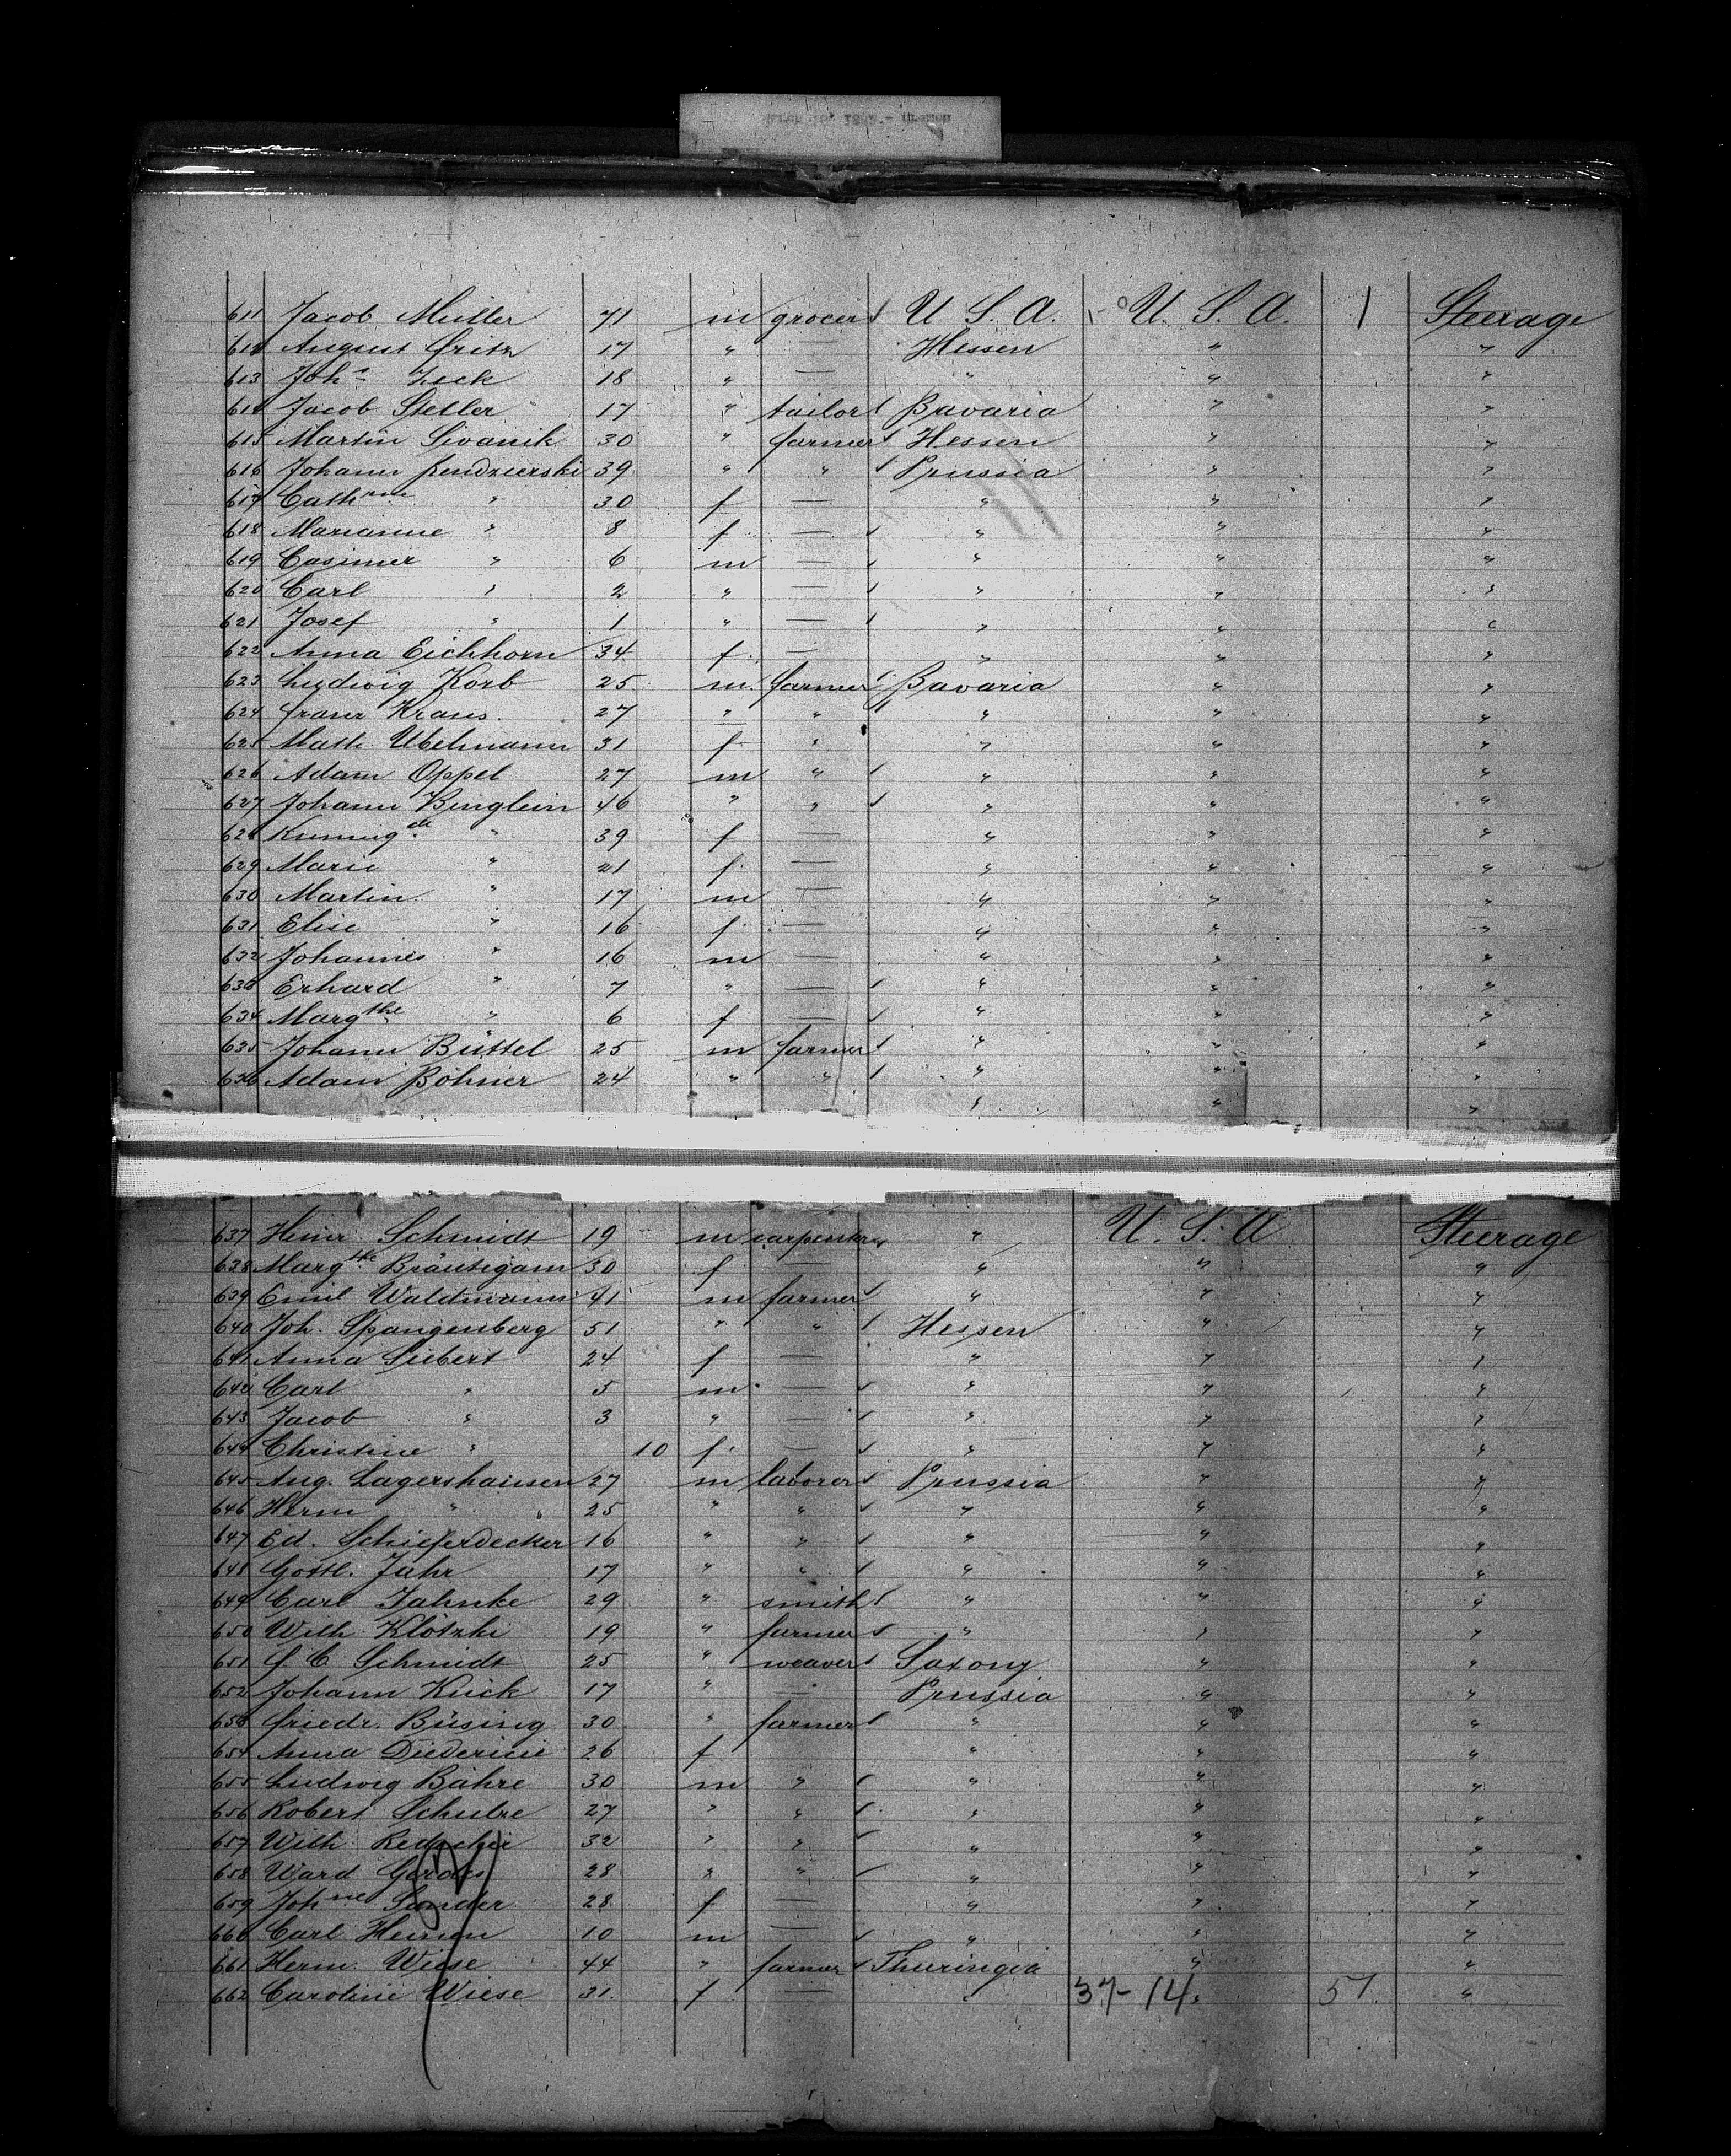 611 Jacob Müller 71 m grocer U. S. A. U. S. A. 1 Steerage
612 August Fritz 17 " — Hessen " "
613 Joh.s Zeck 18 " — " " "
614 Jacob Stetler 17 " tailor Bavaria " "
615 Martin Sivanik 30 " farmer Hessen " "
616 Johann Jendzierski 39 " " Prussia " "
617 Cathrne " 30 f — " " "
618 Marianne " 8 f — " " "
619 Casimer " 6 m — " " "
620 Carl " 2 " — " " "
621 Josef " 1 " — " " "
622 Anna Eichhorn 34 f — " " "
623 Ludwig Korb 25 m farmer Bavaria " "
624 Franz Kraus 27 " " " " "
625 Math. Ubelmann 31 f " " " "
626 Adam Oppel 27 m " " " "
627 Johann Binglein 46 " " " " "
628 Kunnigde " 39 f — " " "
629 Marie " 21 f — " " "
630 Martin " 17 m — " " "
631 Elise " 16 f — " " "
632 Johannes " 16 m — " " "
633 Erhard " 7 " — " " "
634 Margthe " 6 f — " " "
635 Johann Büttel 25 m farmer " " "
636 Adam Böhner 24 " " " " "
" " "
637 Heinr. Schmidt 19 m carpenter " U. S. A Steerage
638 Margthe Bräutigam 30 f — " " "
639 Emil Waldmann 41 m farmer " " "
640 Joh. Spangenberg 51 " " Hessen " "
641 Anna Siebert 24 f — " " "
642 Carl " 5 m — " " "
643 Jacob " 3 " — " " "
644 Christine " 10 f — " " "
645 Aug. Lagershausen 27 m laborer Prussia " "
646 Herm " 25 " " " " "
647 Ed. Schieferdecker 16 " " " " "
648 Gottl. Jahr 17 " " " " "
649 Carl Jahnke 29 " smith " " "
650 Wilh Klötzki 19 " farmer " " "
651 F. C. Schmidt 25 " weaver Saxony " "
652 Johann Kück 17 " — Prussia " "
653 Friedr. Büsing 30 " farmer " " "
654 Anna Diederine 26 f " " "
655 Ludwig Bähre 30 m " " " "
656 Robert Schulze 27 " " " " "
657 Wilh. 32 " " " " "
658 Ward Gerdes 28 " " " " "
659 Johne Sander 28 f — " " "
660 Carl 10 m — " " "
661 Herm. Wiese 44 " farmer Thuringia " "
662 Caroline Wiese 31 f — " 37-14 " 51 "